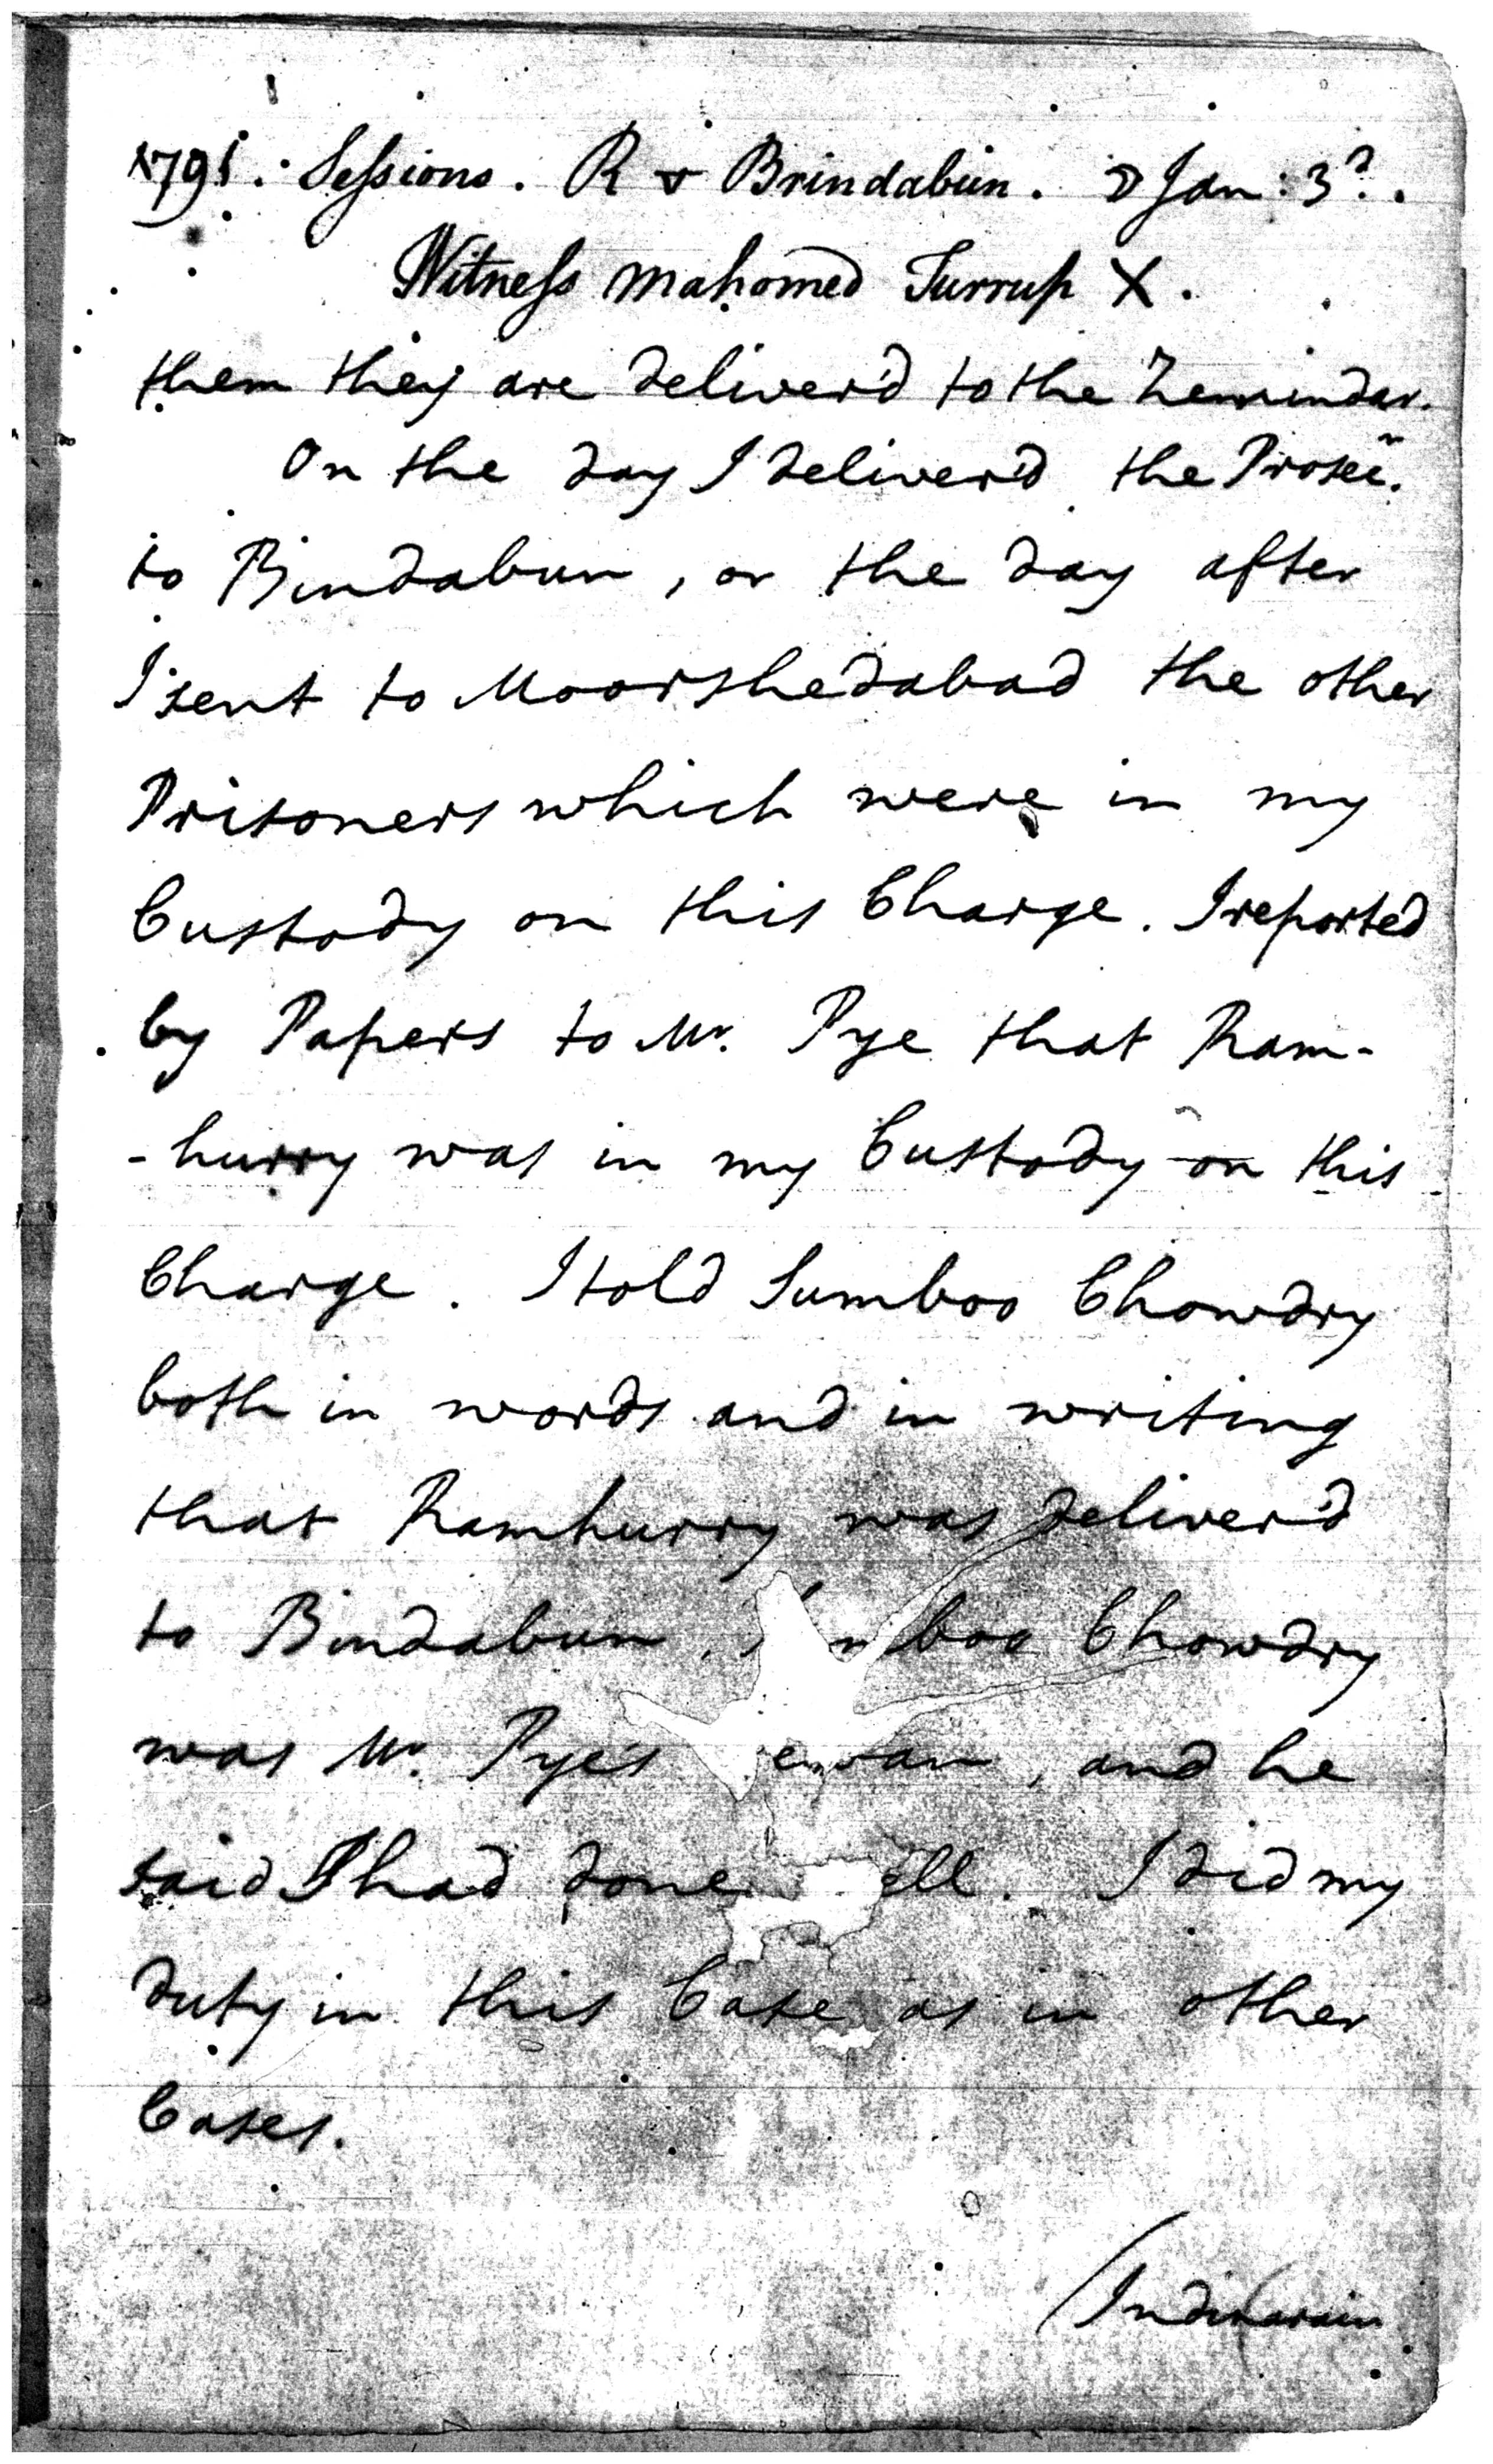 1791. Sessions. R v Brindabun. ☽ Jan: 3d.
Witness Mahomed Turrup X.
them they are deliver'd to the Zemindar.
On the day I deliver'd the Prosec.
to Bindabun, or the day after
I sent to Moorshedabad the other
Prisoners which were in my
Custody on this Charge. I reported
by Papers to Mr. Pye that Ram-
-hurry was in my Custody on this
Charge. I told Sumboo Chowdry
both in words and in writing
that Ramhurry was deliver'd
to Bindabun. boo Chowdry
was Mr. Pye's ewan, and he
said I had done ell. I did my
duty in this Case as in other
Cases.
/Indinarain